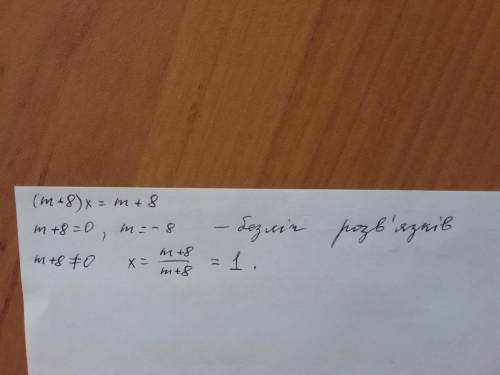 (m+8)x = m+8
m+8=0, m=-8 - безліч розв'язків
m+8≠0 x = \frac{m+8}{m+8} = 1.